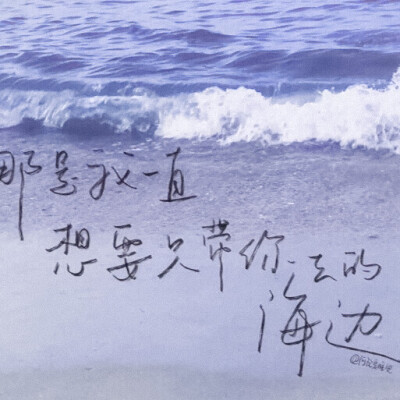 那是我一直
想要只带你去的
海边